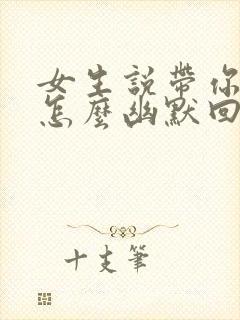 女生説帶你
怎麼幽默回
十支筆